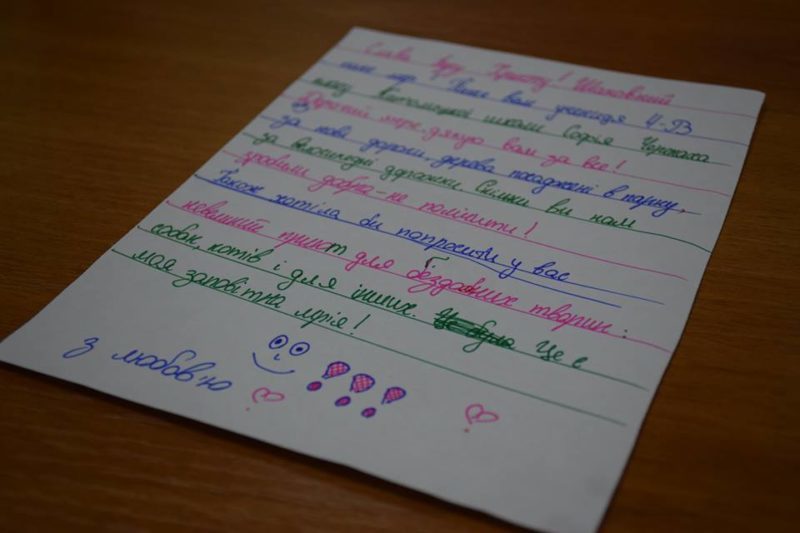 Слава Ісусу Христу! Шановний
пане мер. Пише вам учениця 4-В
класу Житомирської школи Софія
Дорогий мере, дякую вам за все!
за нові дороги, дерева посаджені в парку,
за велосипедні доріжки. Скільки ви нам
зробили добра – не полічити!
Також хотіла би попросити у вас
невеликий приют для бездомних тварин:
собак, котів і для інших. Це є
моя заповітна мрія!
З любов'ю !!!